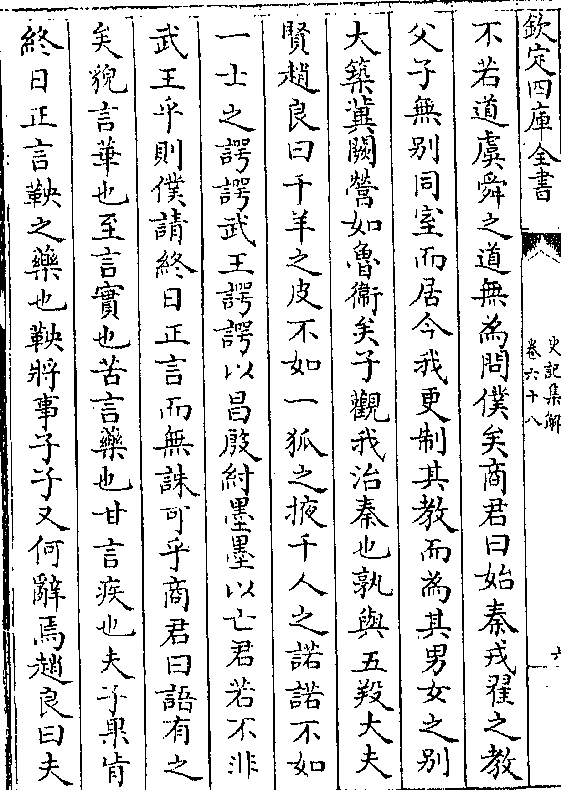 欽定四庫全書
史記集解
卷六十八
六
不若道虞舜之道無為問僕矣商君曰始秦戎翟之教
父子無别同室而居今我更制其教而為其男女之别
大築冀闕營如魯衛矣子觀我治秦也孰與五羖大夫
賢趙良曰千羊之皮不如一狐之掖千人之諾諾不如
一士之諤諤武王諤諤以昌殷紂墨墨以亡君若不非
武王乎則僕請終日正言而無誅可乎商君曰語有之
矣貌言華也至言實也苦言藥也甘言疾也夫子果肯
終日正言鞅之藥也鞅將事子子又何辭焉趙良曰夫